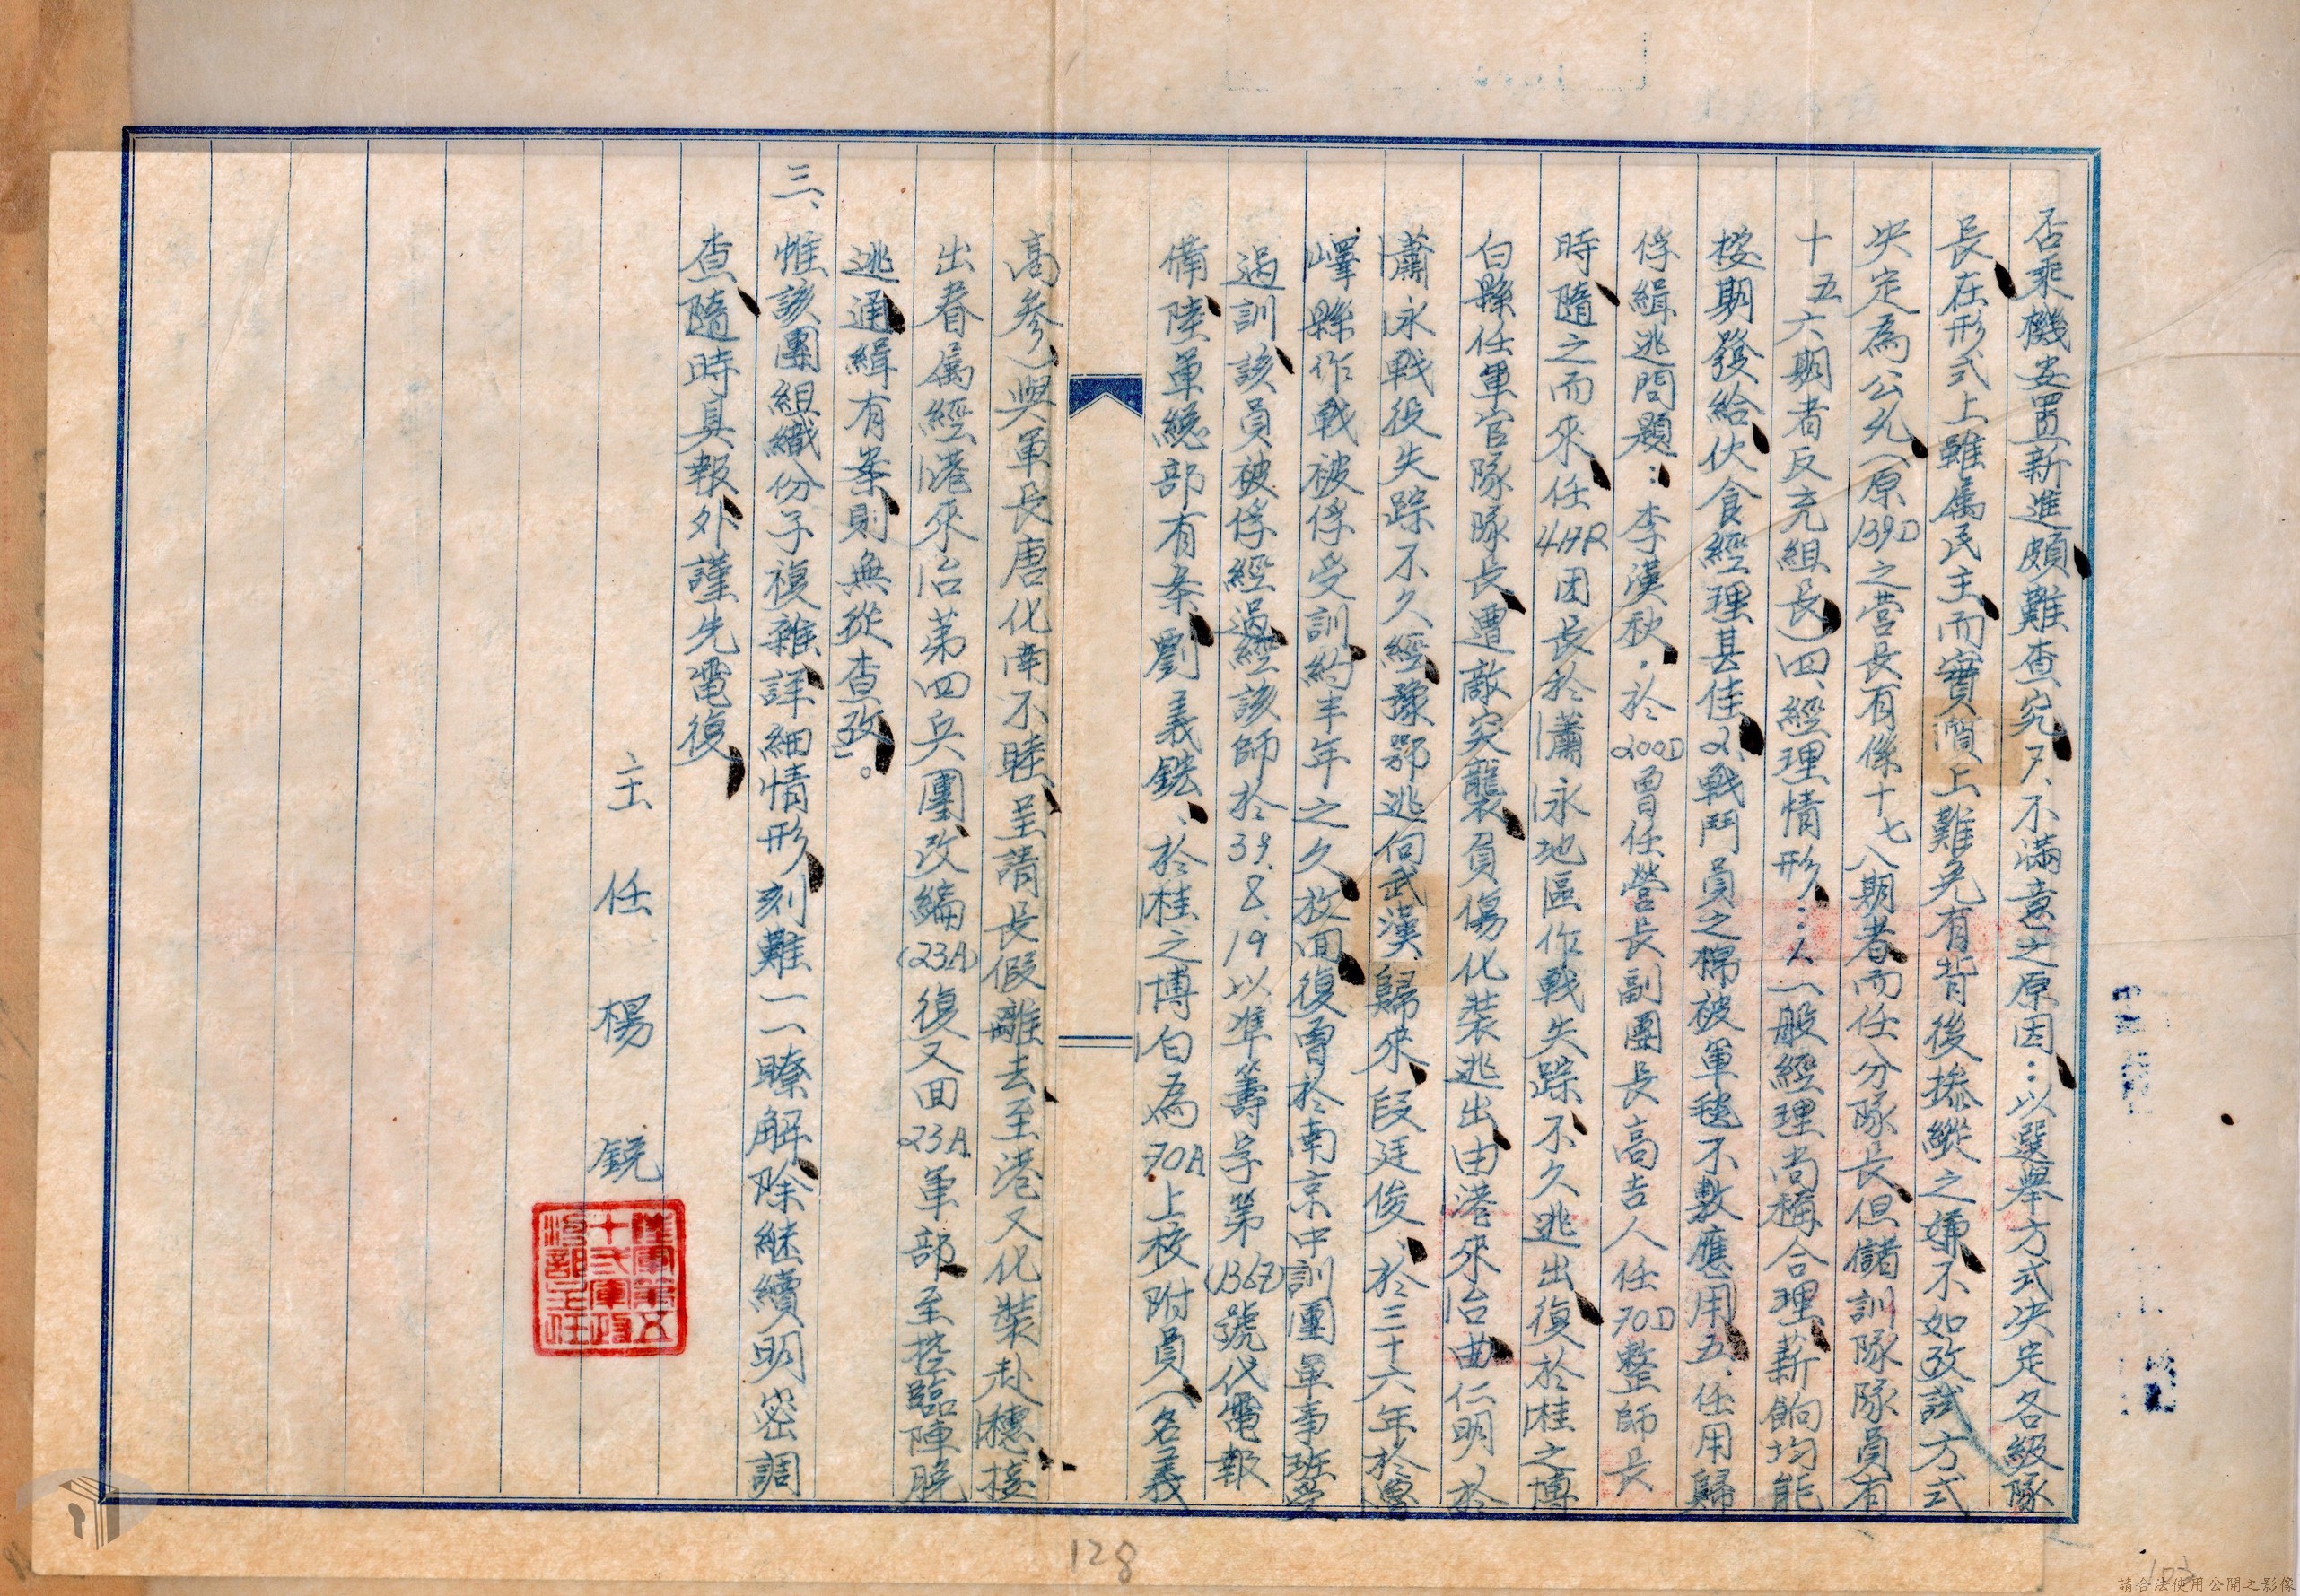 否乘機安置新進頗難查究7.不滿意之原因：以選舉方式決定各級隊
長在形式上雖属民主而實質上難免有背後操縱之嫌不如攷試方式
决定為公允（原139D之营長有係十七八期者而任分隊長但儲訓隊隊員有
十五六期者反充組長）四、經理情形：1.一般經理尚稱合理薪餉均能
按期發給伙食經理甚佳2.戰鬥員之棉被軍毯不敷應用五.任用歸
俘緝逃問題：李漢秋.於200D曾任營長副團長高吉人任70D整師長
時隨之而來任417R团長於瀟永地區作戰失踪不久逃出復於桂之博
白縣任軍官隊隊長遭敵突襲負傷化裝逃出由港來台曲仁明、於
瀟永戰役失踪不久經豫鄂逃向武漢歸來段廷俊、於三十六年於魯
嶧縣作戰被俘受訓約半年之久放回復曾於南京中訓團軍事班受
過訓該員被俘經過經該師於39.8.19以準籌字第(1367)號代電報
備陸軍總部有案劉義鋕、於桂之博白為70A上校附員（名義
高參）與軍長唐化南不睦呈請長假離去至港又化裝赴穗接
出眷属經港來台第四兵團改編(23A)復又回23A軍部至控臨陣脱
逃通緝有案則無從查攷」。
三、惟該團組織份子複雜詳細情形刻難一一瞭解除継續明密調
查隨時具報外謹先電復
主任楊銳
陸軍第五十二軍政治部主任
128
請合法使用公開之影像